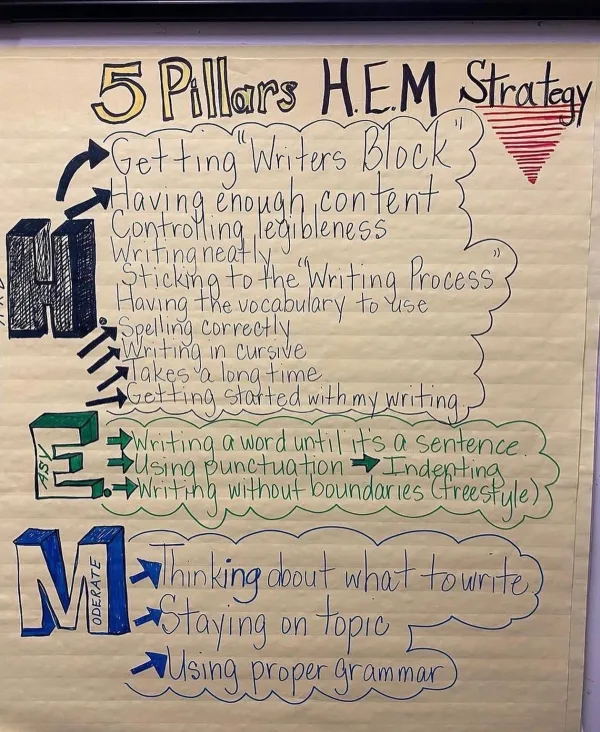 5 Pillars H.E.M Strategy
Getting "Writers Block"
Having enough content
Controlling legibleness
Writing neatly
Sticking to the "Writing Process"
Having the vocabulary to use
Spelling correctly
Writing in cursive
Takes a long time
Getting started with my writing
H.
ARD
E.
ASY
Writing a word until it's a sentence.
Using punctuation → Indenting
Writing without boundaries (freestyle)
M
ODERATE
Thinking about what to write
Staying on topic
Using proper grammar